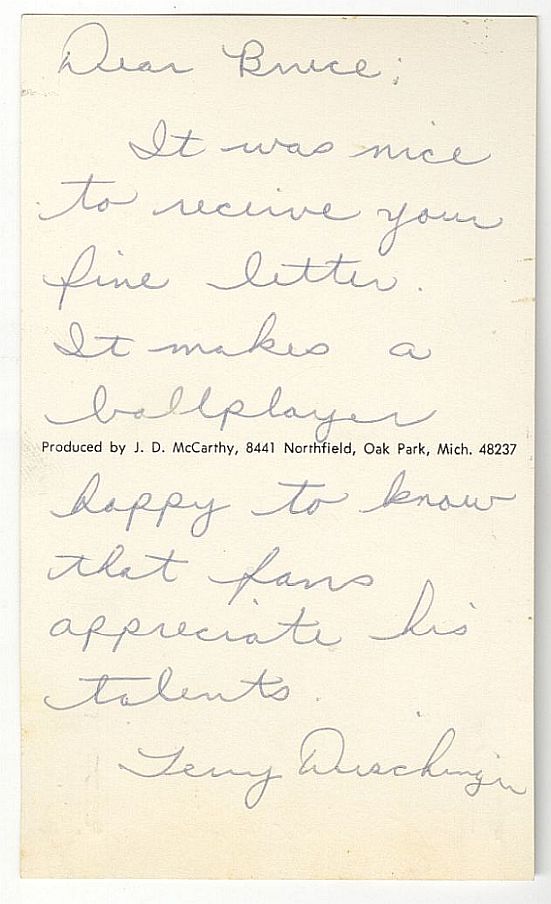 Dear Bruce;
It was nice
to receive your
fine letter.
It makes a
ballplayer
Produced by J. D. McCarthy, 8441 Northfield, Oak Park, Mich. 48237
happy to know
that fans
appreciate his
talents.
Terry Dischinger